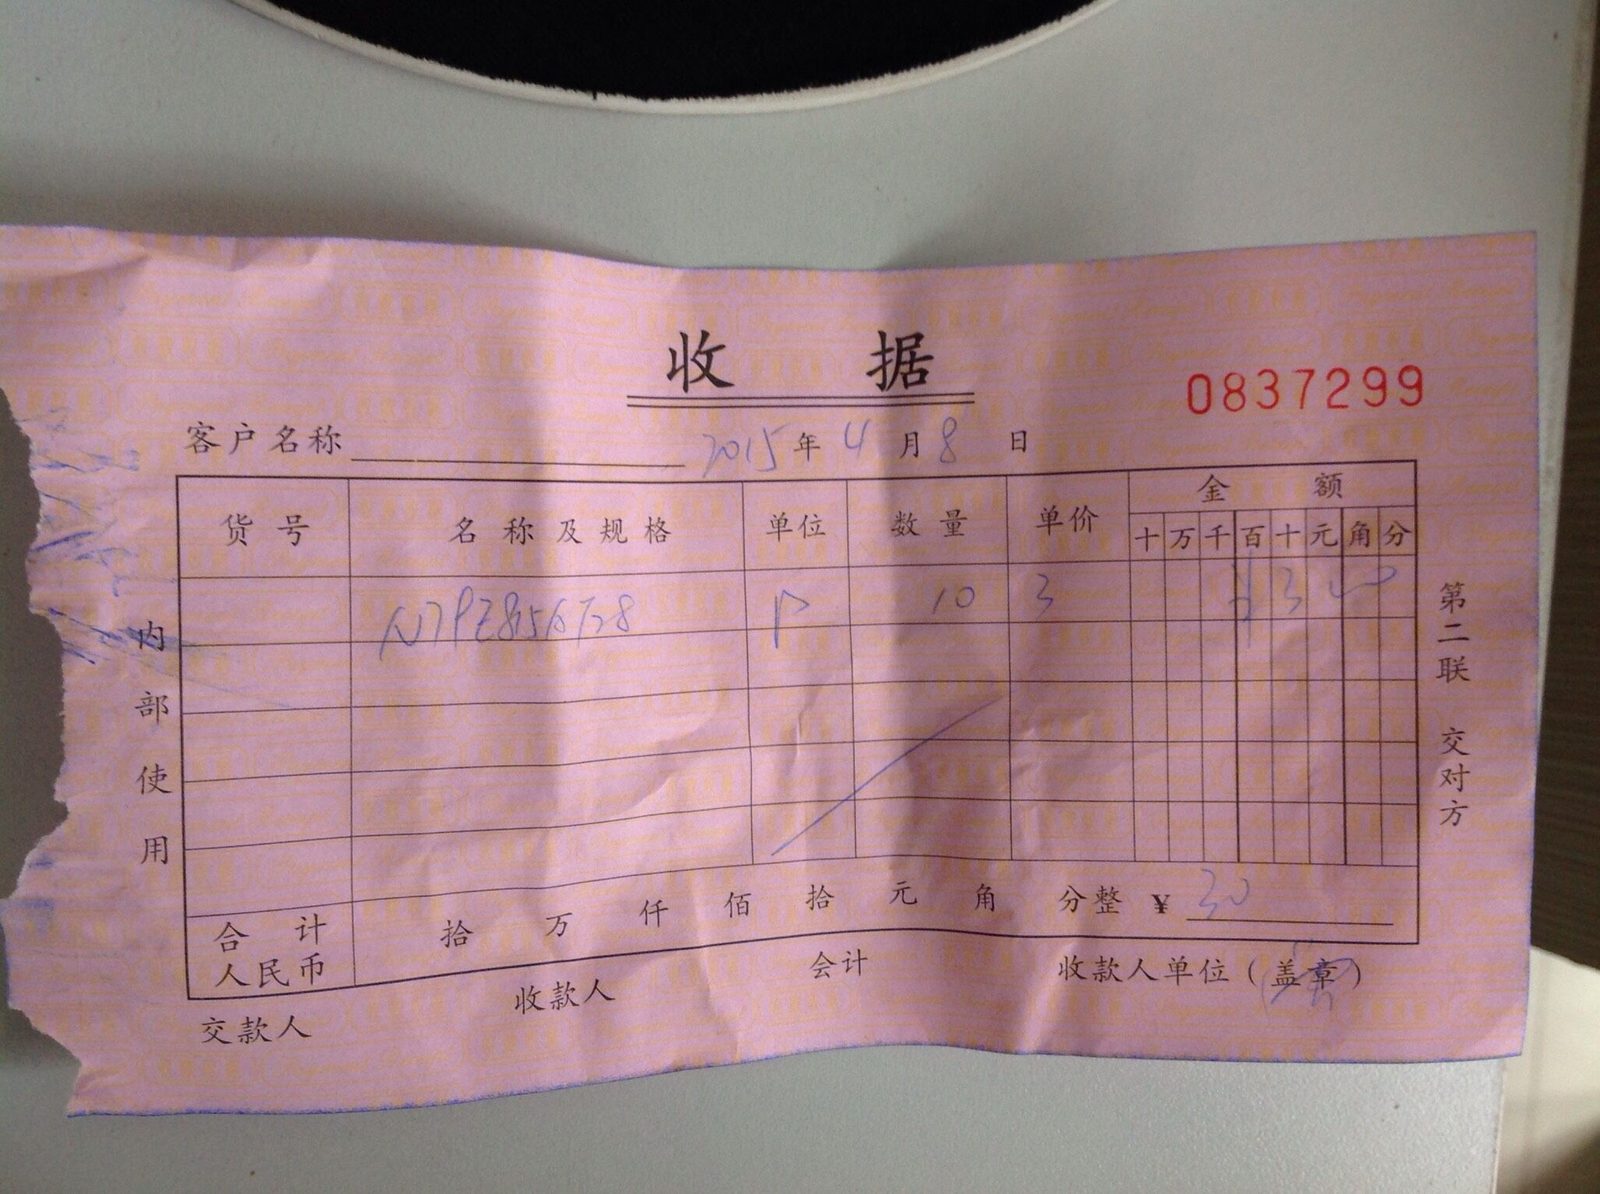 收据
0837299
客户名称 2015年4月8日
货号 名称及规格 单位 数量 单价 金额
十万千百十元角分
10 3 ¥30
合计人民币 拾 万 仟 佰 拾 元 角 分整 ¥30
交款人 收款人 会计 收款人单位(盖章)
内部使用
第二联 交对方